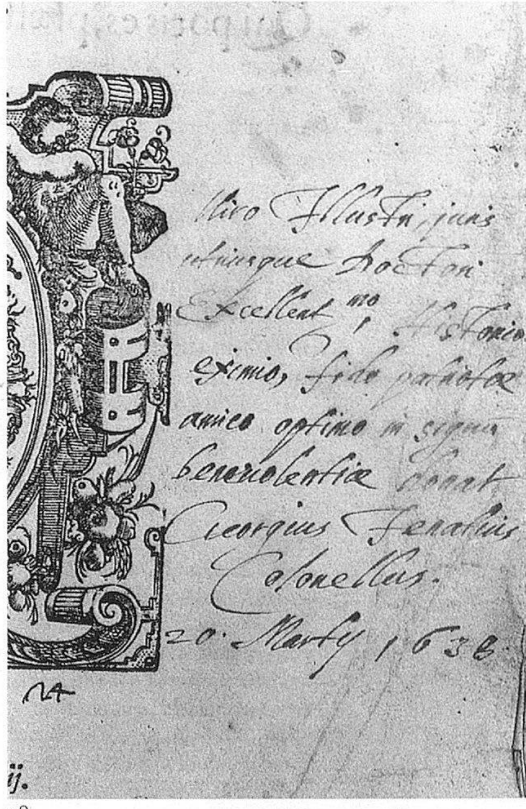 Qui potises, 
Viro Illustri, juris
utriusque Doctori
Excellent.mo, Historico
eximio, fido patriotæ
amico optimo in signū
benevolentiæ donat
Georgius Jenatius
Colonellus.
20. Martÿ 1638.
24
ij.